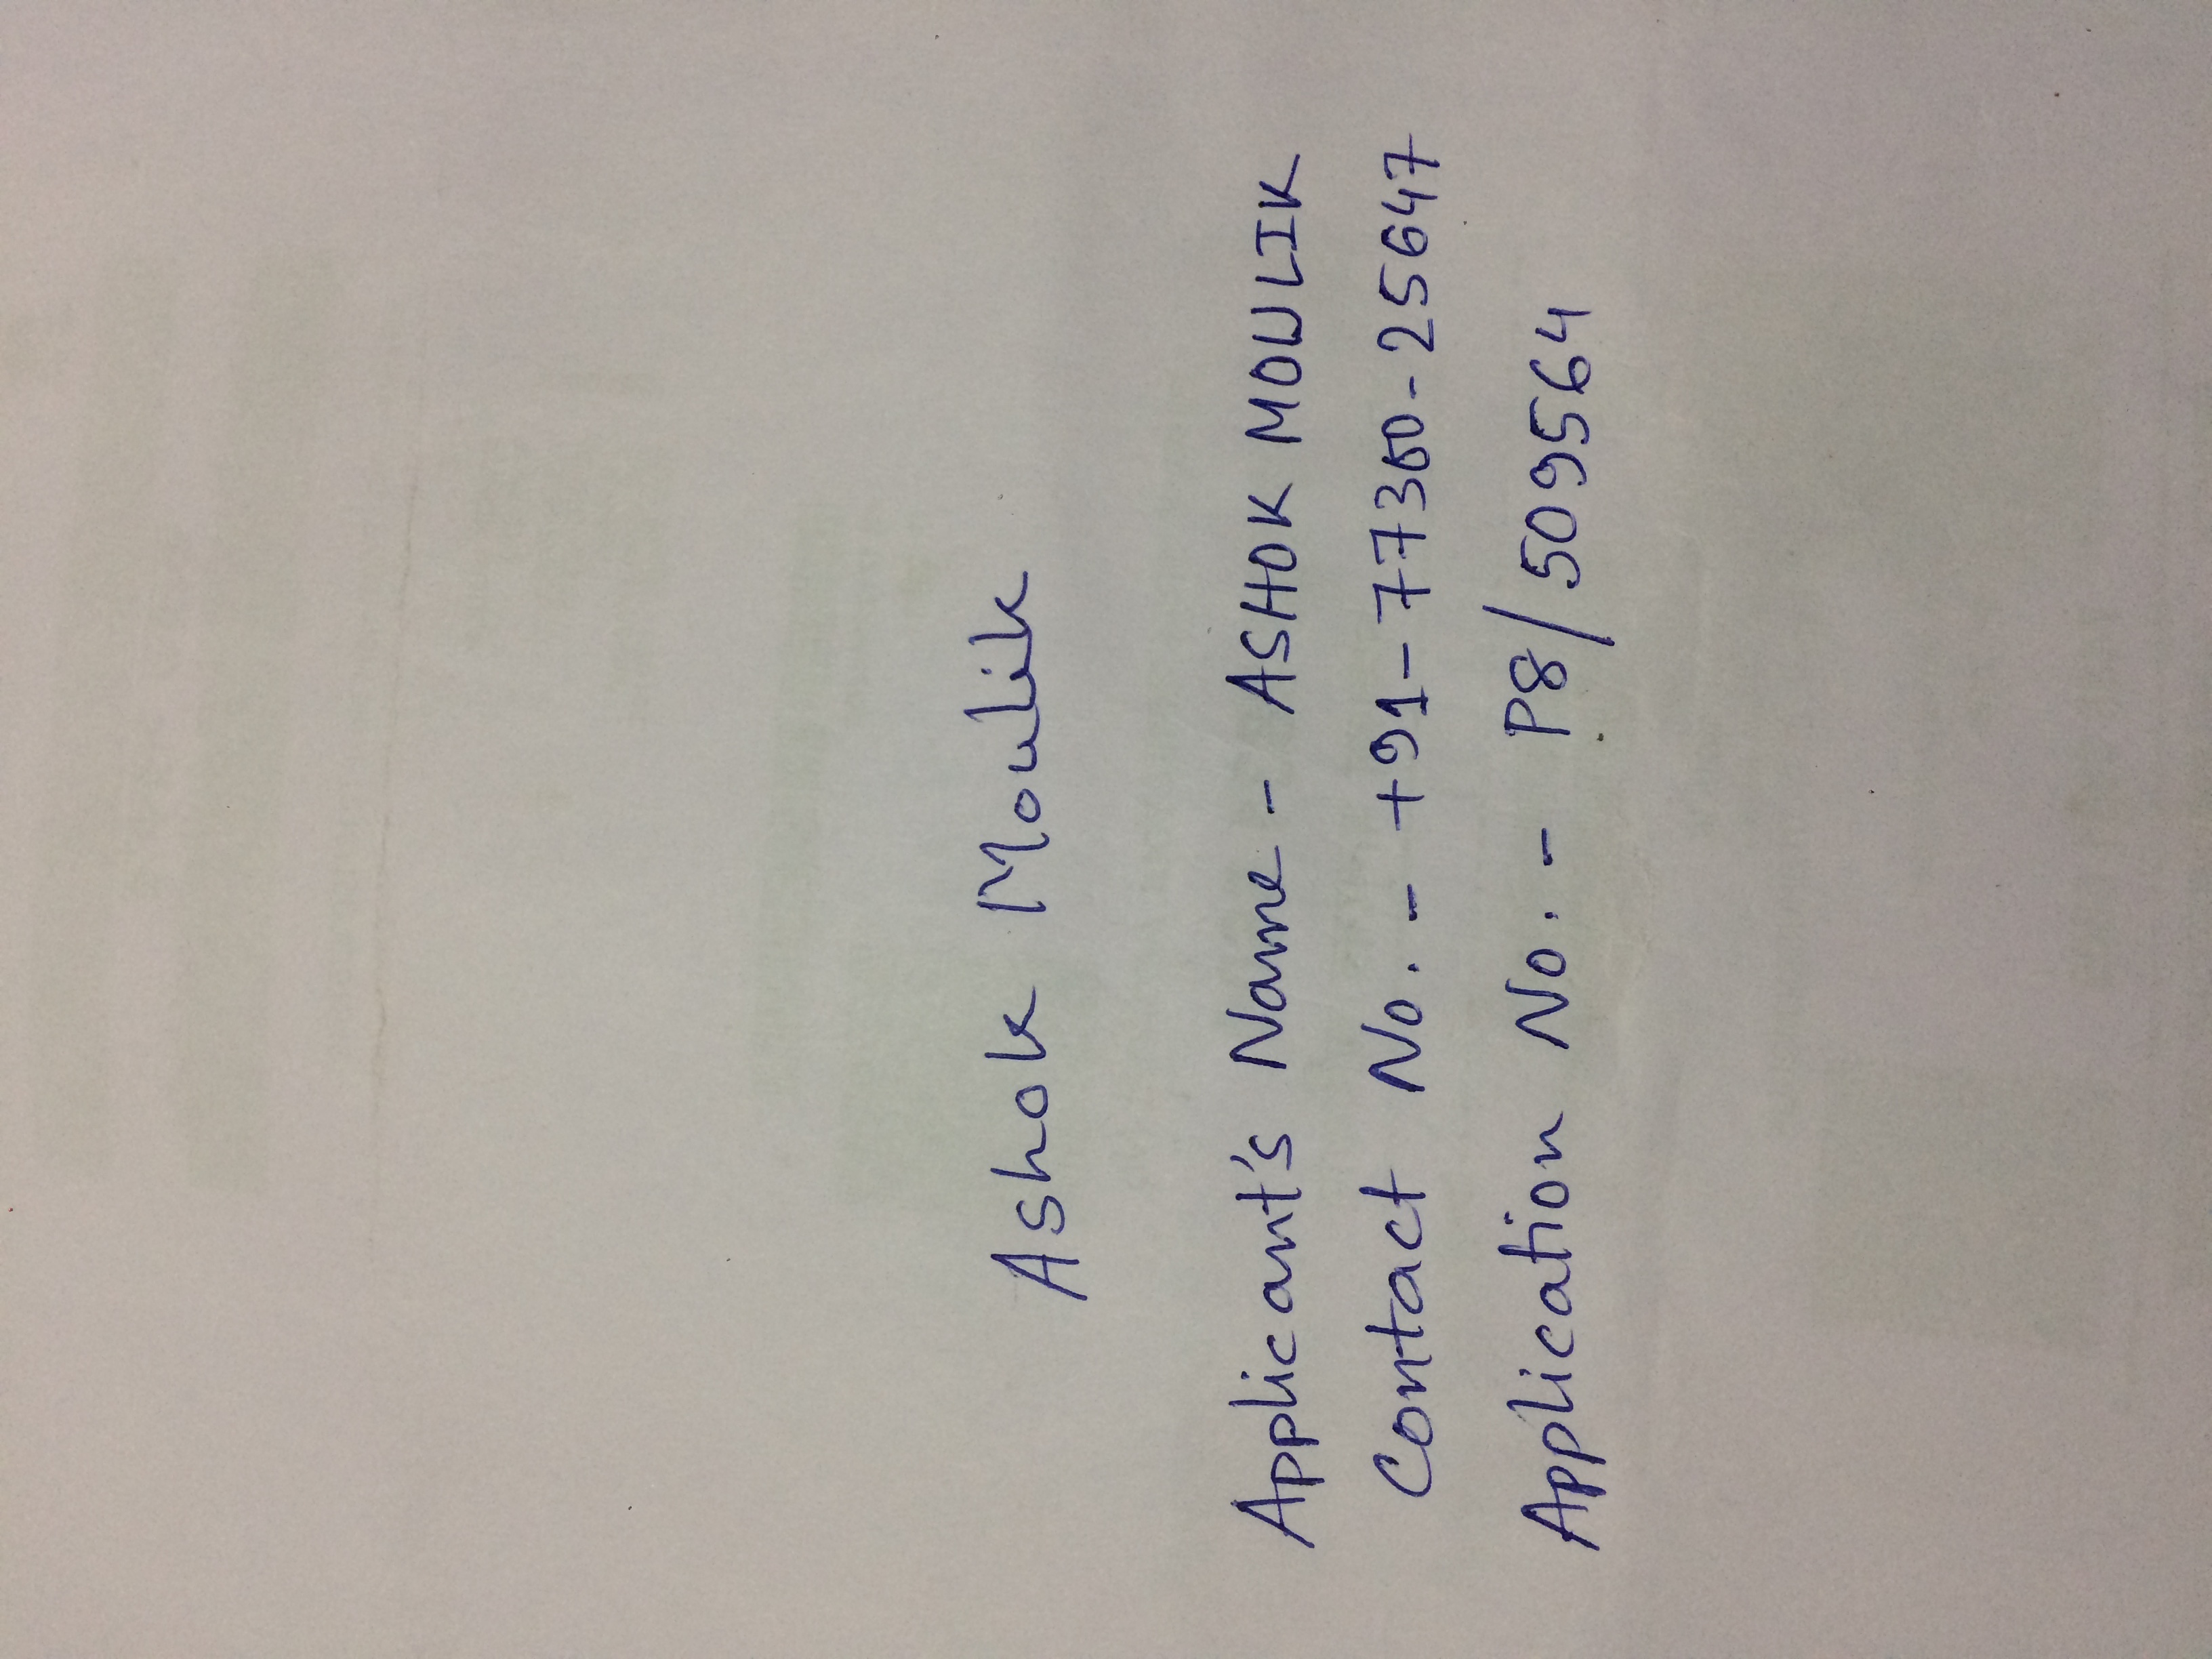 Ashok Moulik
Applicant's Name - ASHOK MOULIK
Contact No. - +91-77300-25647
Application No. - P8/509564